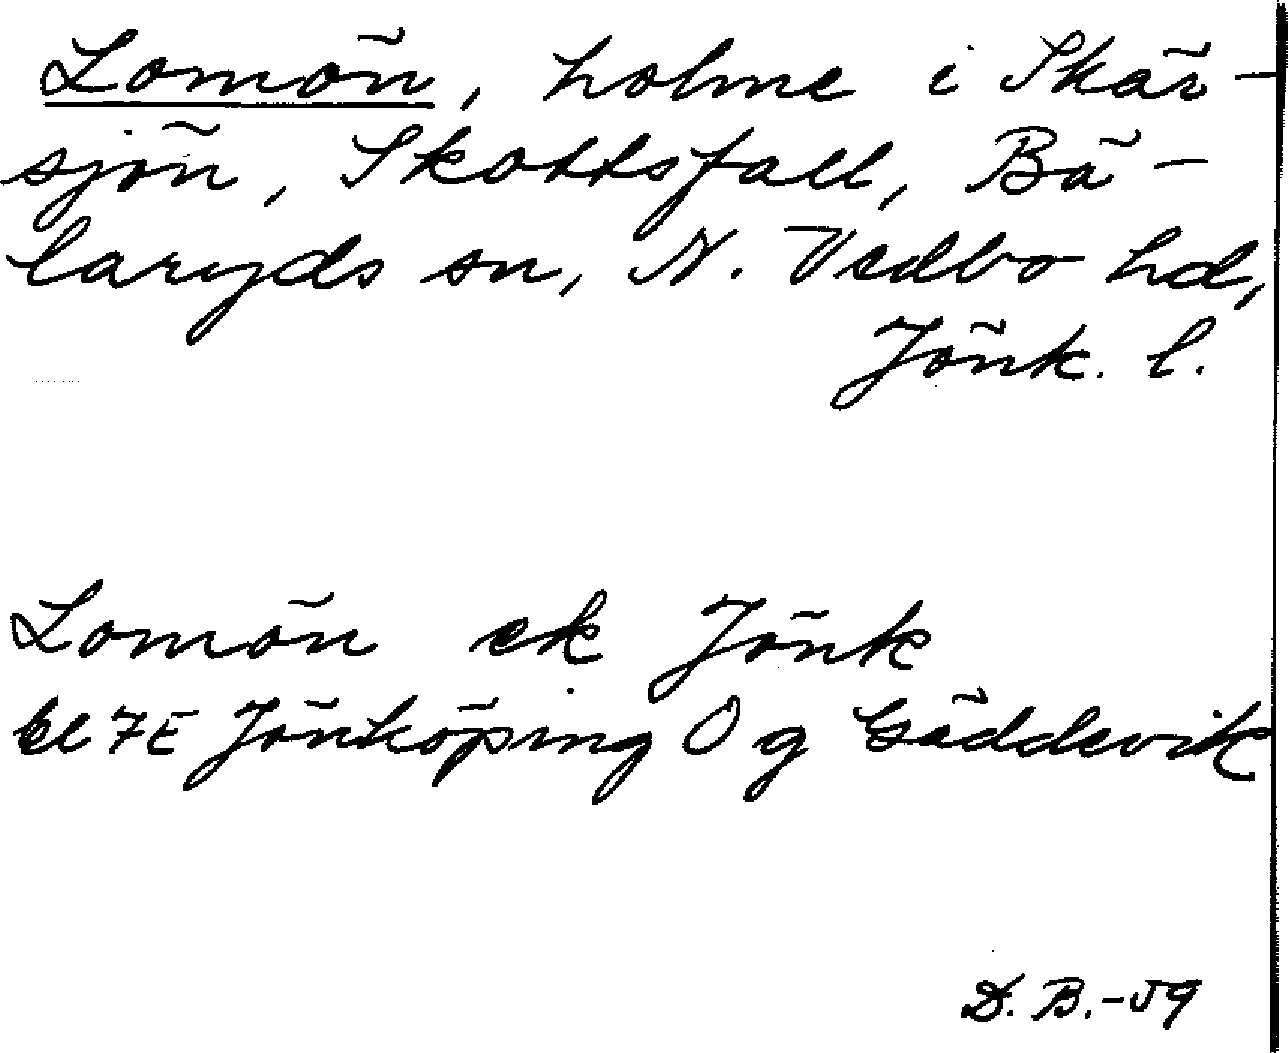 Lomön, holme i Skär-
sjön, Skottsfall, Bä-
laryds sn, N. Vedbo hd,
Jönk. l.
Lomön ek Jönk
bl 7E Jönköping O g Gäddevik
D. B. -59